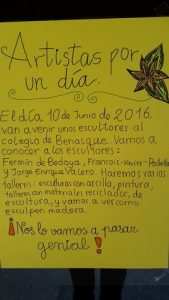 Artistas por
un día.
El día 10 de Junio de 2016,
van a venir unos escultores al
colegio de Benasque. Vamos a
conocer a los escultores:
Fermín de Bedoya, Francois-Xavier
y Jorge Enrique Valero. Haremos varios
talleres: esculturas con arcilla, pintura,
talleres con materiales reciclados, de
escultura, y vamos a ver como
esculpen madera.
¡Nos lo vamos a pasar
genial!